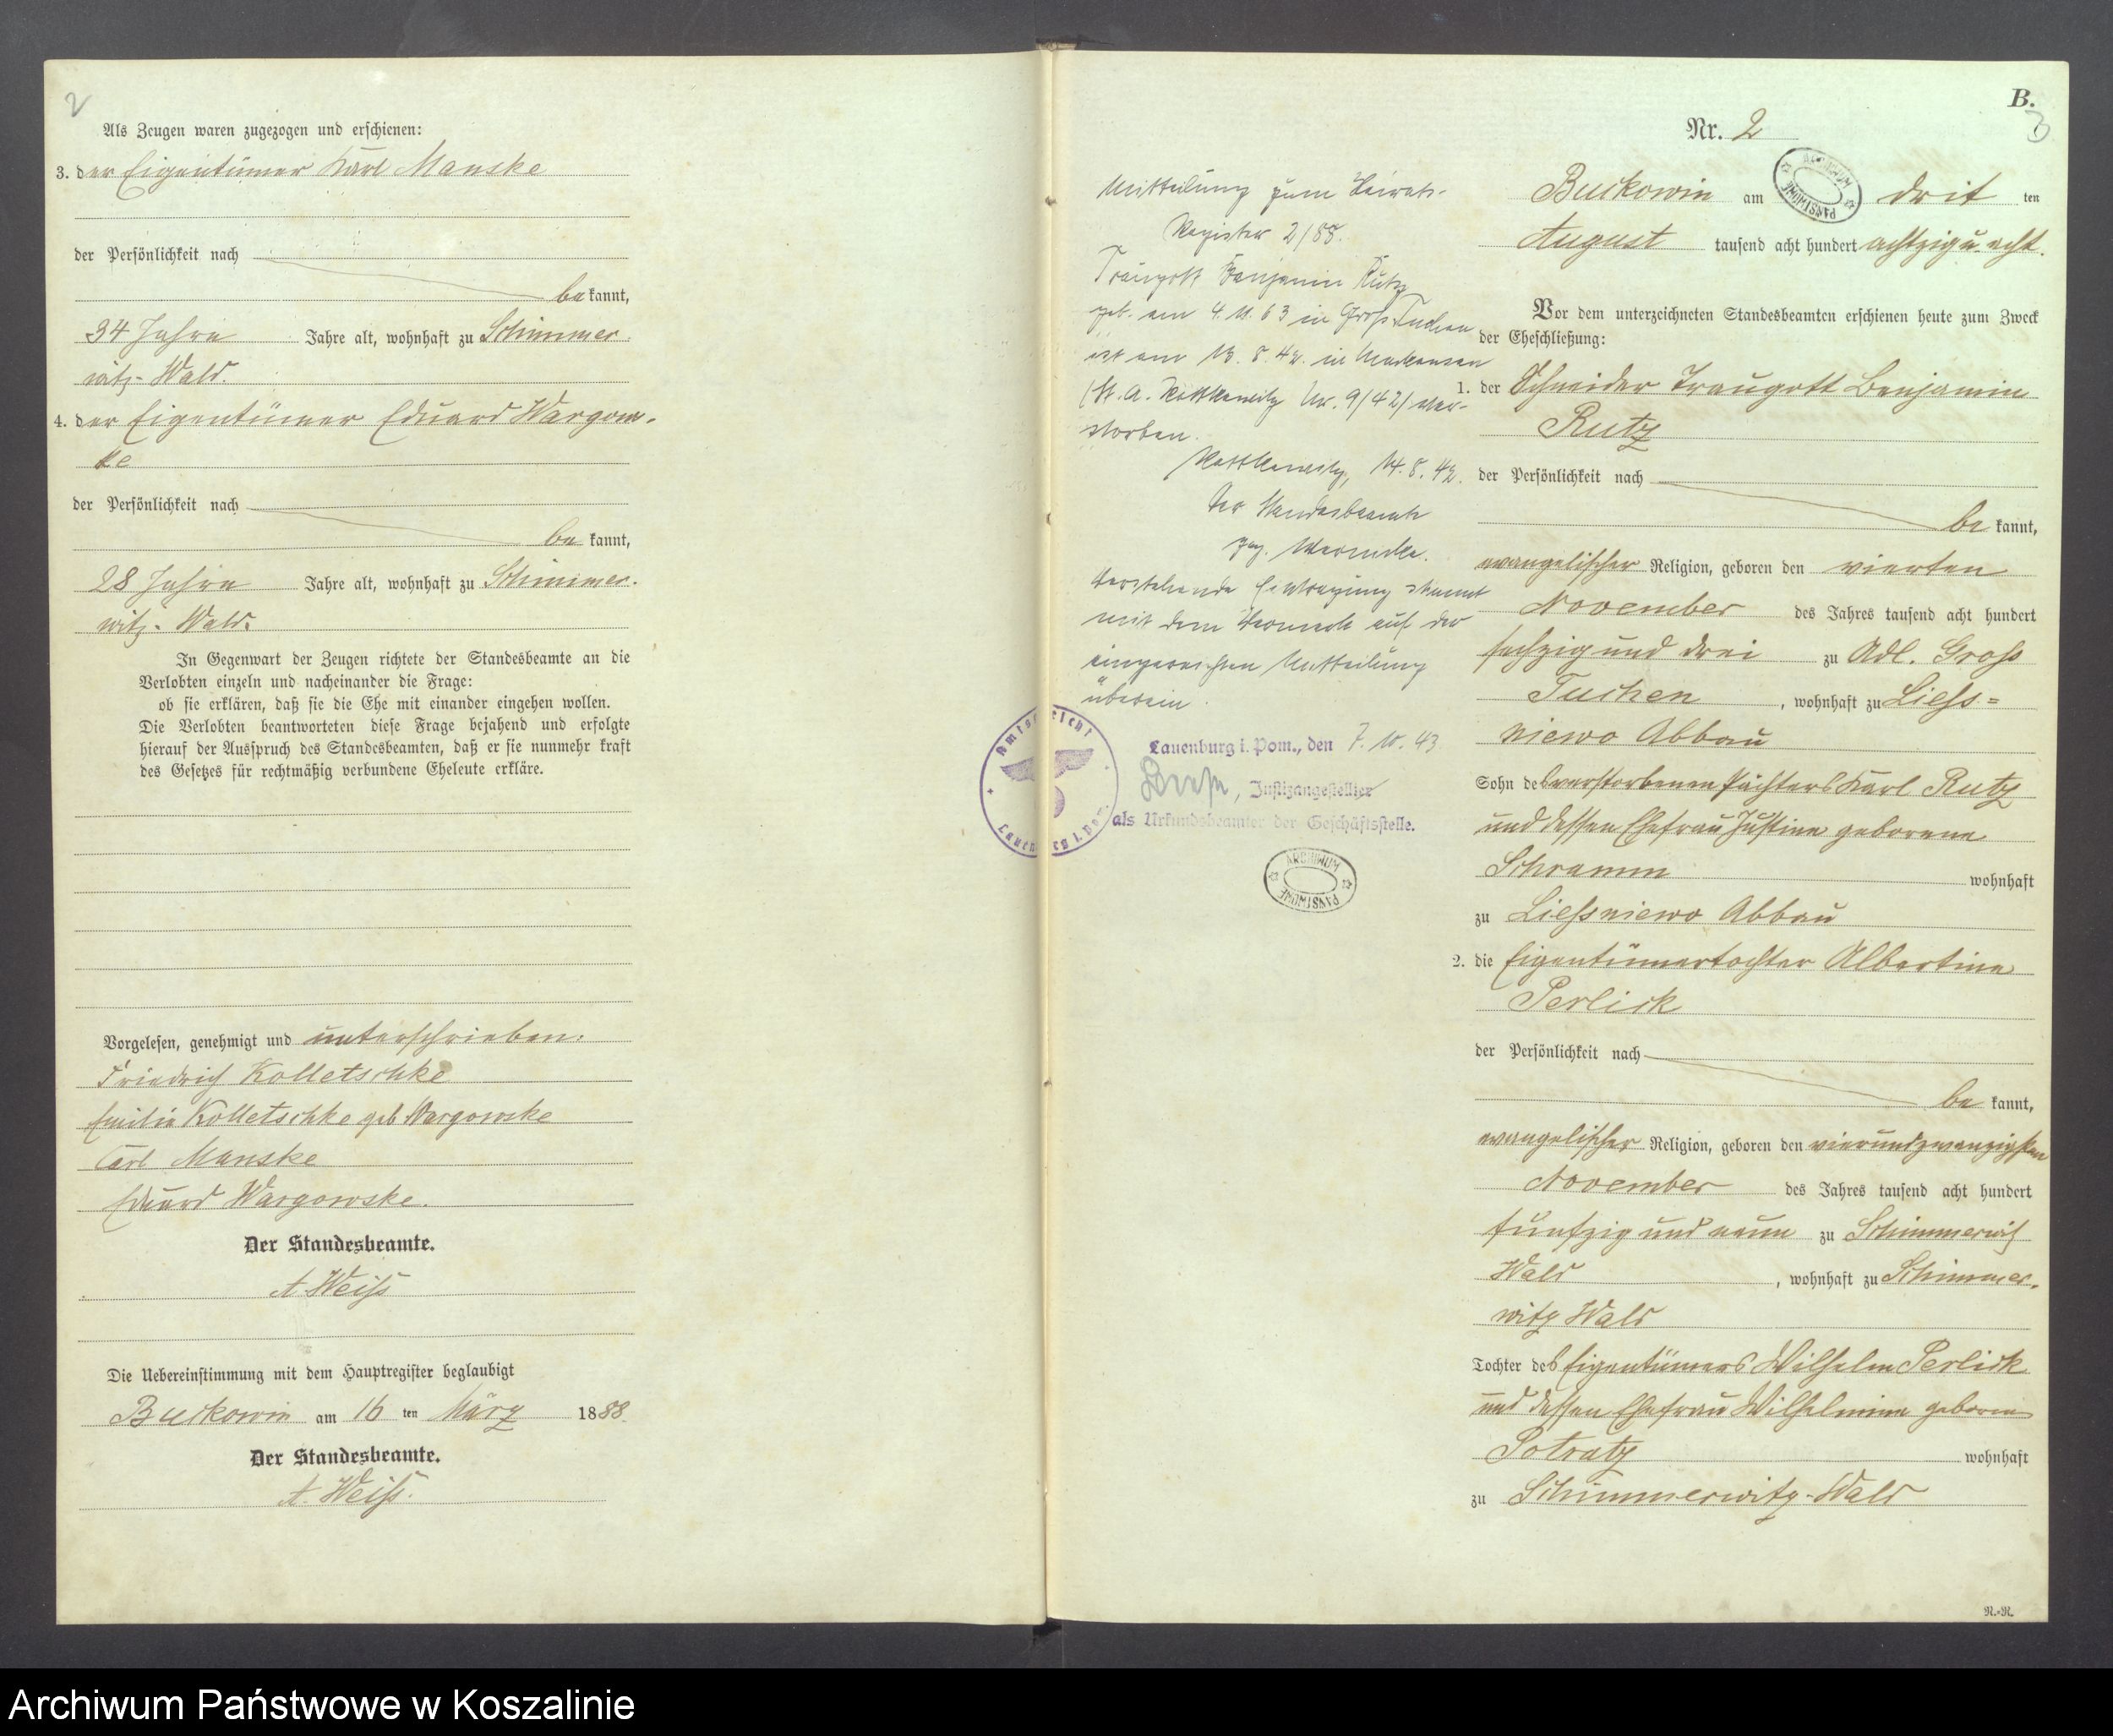 2
Als Zeugen waren zugezogen und erschienen:
3. der Eigentümer Karl Manske
der Persönlichkeit nach
bekannt,
34 Jahre Jahre alt, wohnhaft zu Schimmer
witz-Wald.
4. der Eigentümer Eduard Wargows-
ke
der Persönlichkeit nach
bekannt,
28 Jahre Jahre alt, wohnhaft zu Schimmer-
witz-Wald.
In Gegenwart der Zeugen richtete der Standesbeamte an die
Verlobten einzeln und nacheinander die Frage:
ob sie erklären, daß sie die Ehe mit einander eingehen wollen.
Die Verlobten beantworteten diese Frage bejahend und erfolgte
hierauf der Ausspruch des Standesbeamten, daß er sie nunmehr kraft
des Gesetzes für rechtmäßig verbundene Eheleute erkläre.
Vorgelesen, genehmigt und unterschrieben:
Friedrich Kolletschke
Emilie Kolletschke geb Wargowske
Carl Manske
Eduard Wargowske.
Der Standesbeamte.
A Weiß
Die Uebereinstimmung mit dem Hauptregister beglaubigt
Buckowin am 16 ten März 1888.
Der Standesbeamte.
A. Weiß.
Mitteilung zum Heirats-
Register 2/88.
Traugott Benjamin Rutz
geb. am 4.11.63 in Groß Tuchen
ist am 13.8.42. in
(St. A. Nr. 9/42) ver-
storben.
14.8.42.
Der Standesbeamte
gez.
Vorstehende Eintragung stimmt
mit dem Vermerk auf der
eingereichten Mitteilung
überein.
Amtsgericht
Lauenburg i. Pom.
Lauenburg i. Pom., den 7.10.43
, Justizangestellter
als Urkundsbeamter der Geschäftsstelle.
ARCHIWUM
PAŃSTWOWE
B.
3
Nr. 2
ARCHIWUM
PAŃSTWOWE
Buckowin am drit ten
August tausend acht hundert achtzig u. acht.
Vor dem unterzeichneten Standesbeamten erschienen heute zum Zweck
der Eheschließung:
1. der Schneider Traugott Benjamin
Rutz
der Persönlichkeit nach
be kannt,
evangelischer Religion, geboren den vierten
November des Jahres tausend acht hundert
sechzig und drei zu Adl. Groß
Tuchen, wohnhaft zu Ließ=
niewo Abbau
Sohn des verstorbenen Pächters Karl Rutz
und dessen Ehefrau Justine geborene
Schramm wohnhaft
zu Ließniewo Abbau
2. die Eigentümertochter Albertine
Perlick
der Persönlichkeit nach
be kannt,
evangelischer Religion, geboren den vierundzwanzigsten
November des Jahres tausend acht hundert
fünfzig und neun zu Schimmerwitz
Wald, wohnhaft zu Schimmer-
witz Wald
Tochter des Eigentümers Wilhelm Perlick
und dessen Ehefrau Wilhelmine geborene
Potratz wohnhaft
zu Schimmerwitz-Wald
N.=N.
Archiwum Państwowe w Koszalinie